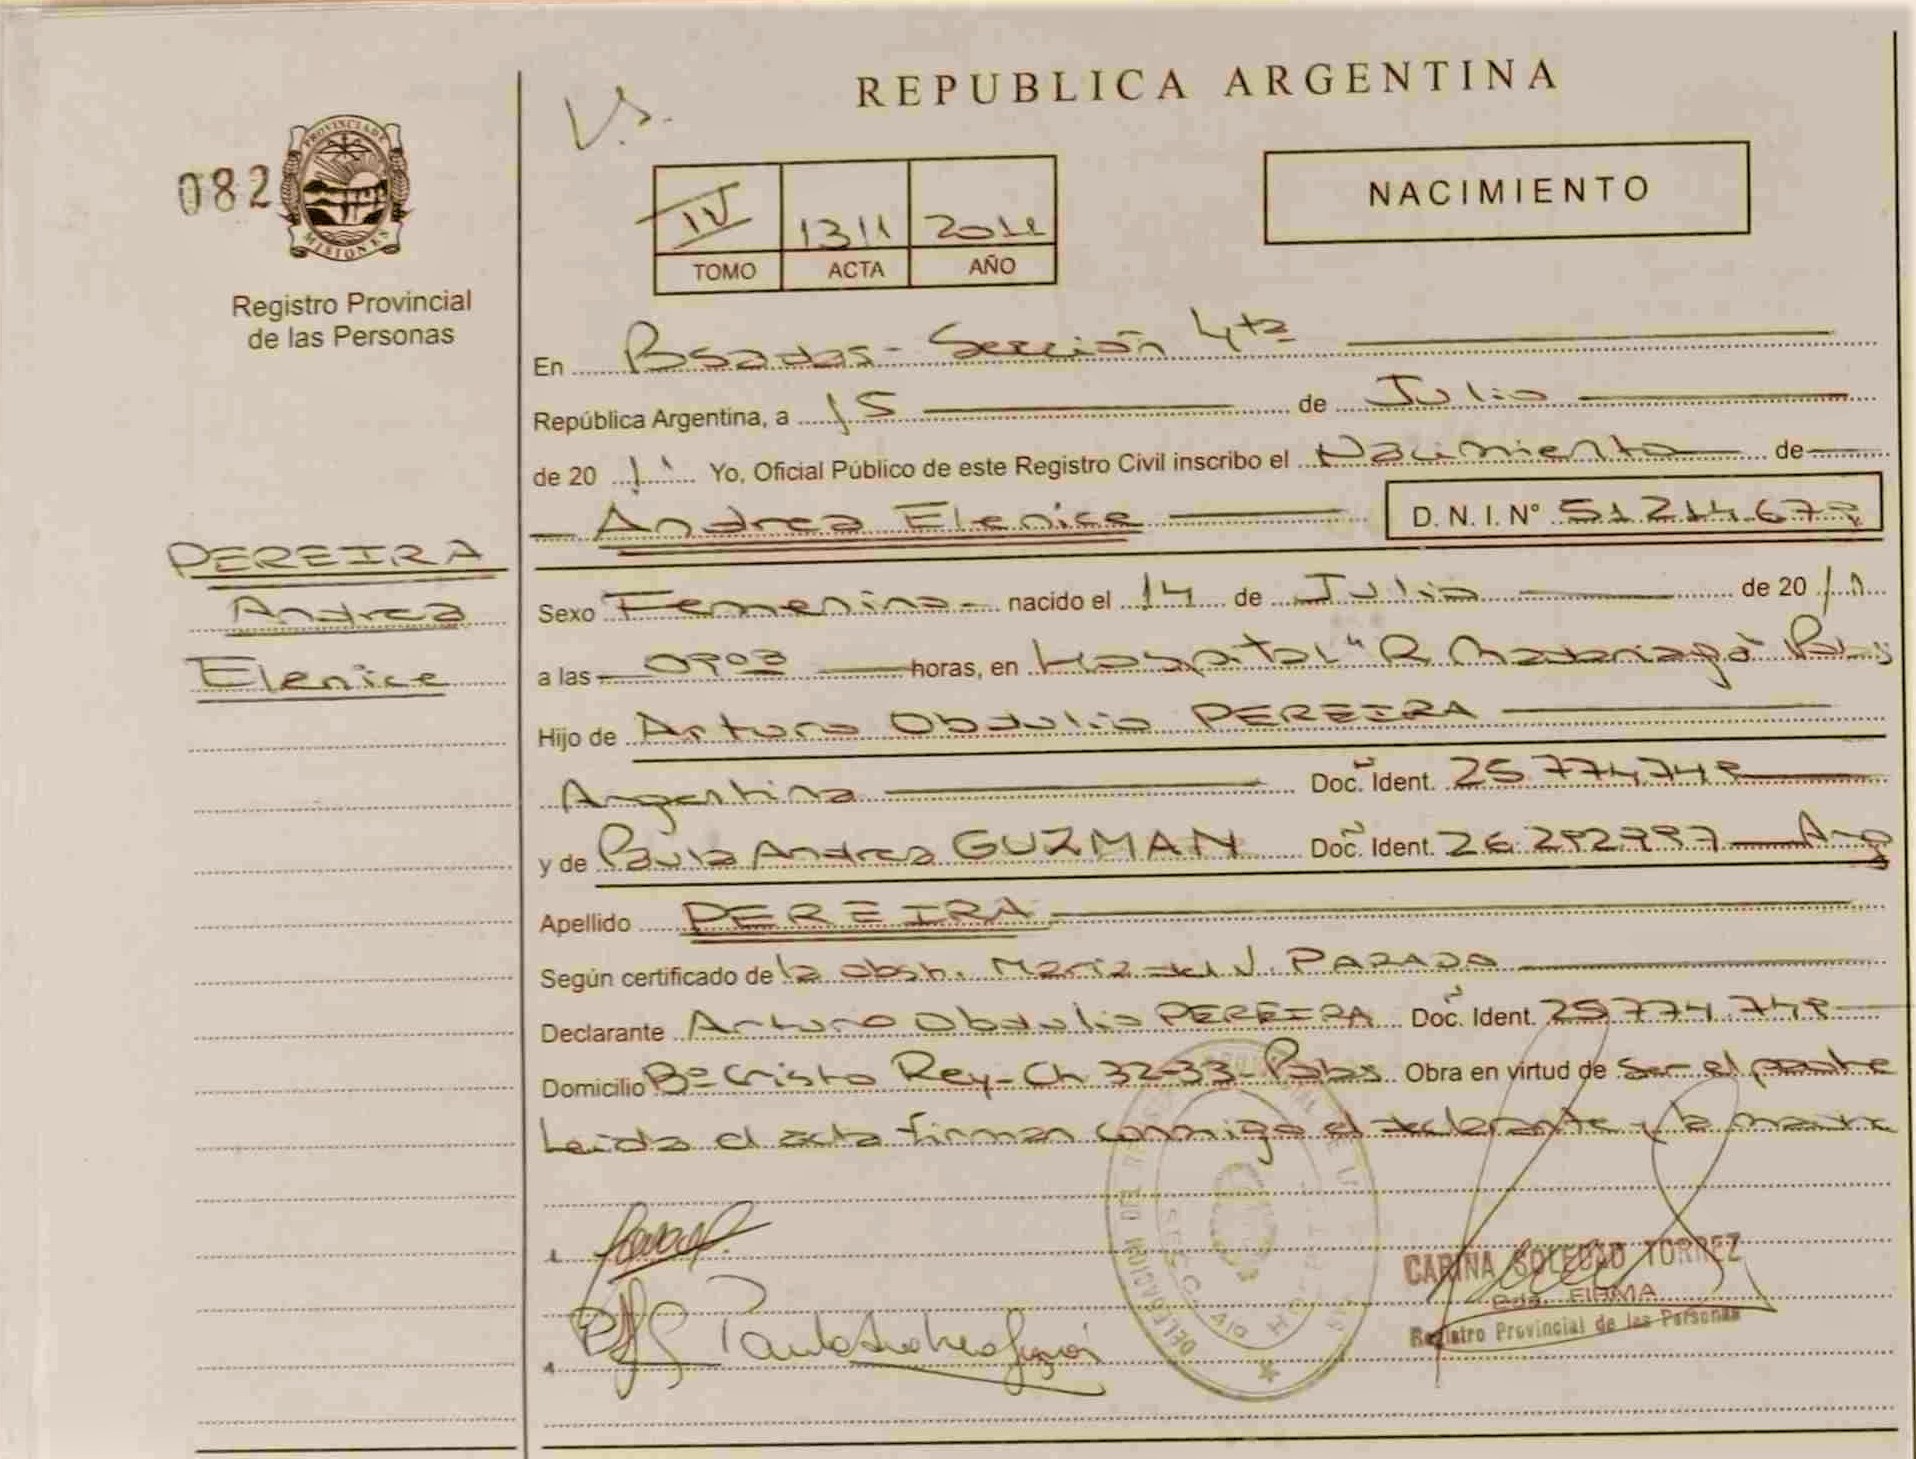 REPUBLICA ARGENTINA
V.S.
082
PROVINCIA DE MISIONES
Registro Provincial
de las Personas
IV 1311 2011
TOMO ACTA AÑO
NACIMIENTO
En Posadas - Sección 4ta
República Argentina, a 15 de Julio
de 20 11 Yo, Oficial Público de este Registro Civil inscribo el Nacimiento de
Andrea Elenice D. N. I. N° 51.214.67
PEREIRA
Andrea
Elenice
Sexo Femenino - nacido el 14 de Julio de 20 11
a las 0903 horas, en Hospital "R. Madariaga" Pdas
Hijo de Arturo Obdulio PEREIRA
Argentina Doc. Ident. 25.774.748
y de Paula Andrea GUZMAN Doc. Ident. Arg
Apellido PEREIRA
Según certificado de la obst. María del V. PARADA
Declarante Arturo Obdulio PEREIRA Doc. Ident. 25.774.748
Domicilio Bº Cristo Rey - Ch 32-33 - Pdas Obra en virtud de ser el padre
Leida el acta firman conmigo el declarante y la madre
CARINA SOLEDAD TORREZ
FIRMA
Registro Provincial de las Personas
Paula Andrea Guzmán